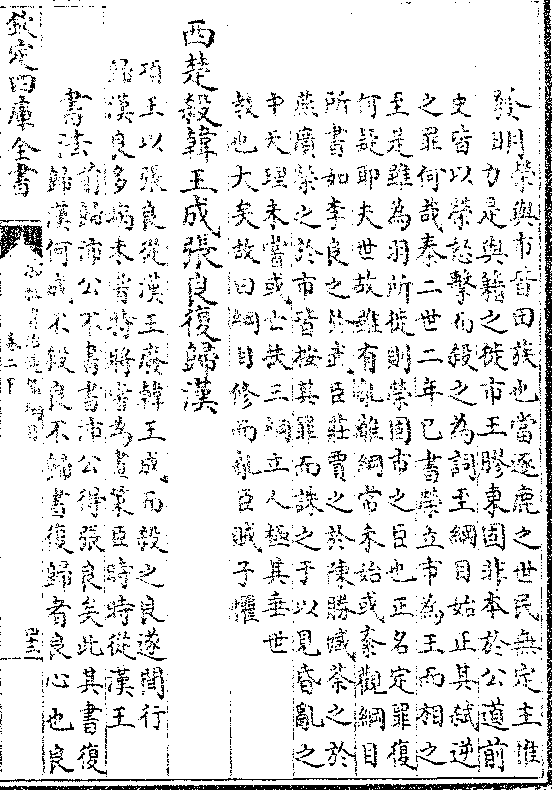 發明榮與市皆田族也當逐鹿之世民無定主惟
力是與籍之徙市王膠東固非本於公道前
史皆以榮怒擊而殺之為詞至綱目始正其弒逆
之罪何哉秦二世二年已書榮立市為王而相之
至是雖為羽所徙則榮固市之臣也正名定罪復
何疑耶夫世故雖有亂離綱常未始或紊觀綱目
所書如李良之於武臣莊賈之於陳勝臧荼之於
燕廣榮之於市皆按其罪而誅之于以見昏亂之
中天理未嘗或亡扶三綱立人極其垂世
教也大矣故曰綱目修而亂臣賊子懼
西楚殺韓王成張良復歸漢
項王以張良從漢王廢韓王成而殺之良遂間行
歸漢良多病未嘗特將嘗為畫策臣時時從漢王
書法前歸沛公不書書沛公得張良矣此其書復
歸漢何成不殺良不歸書復歸者良心也良
欽定四庫全書
資治通鑑綱目
卷二下